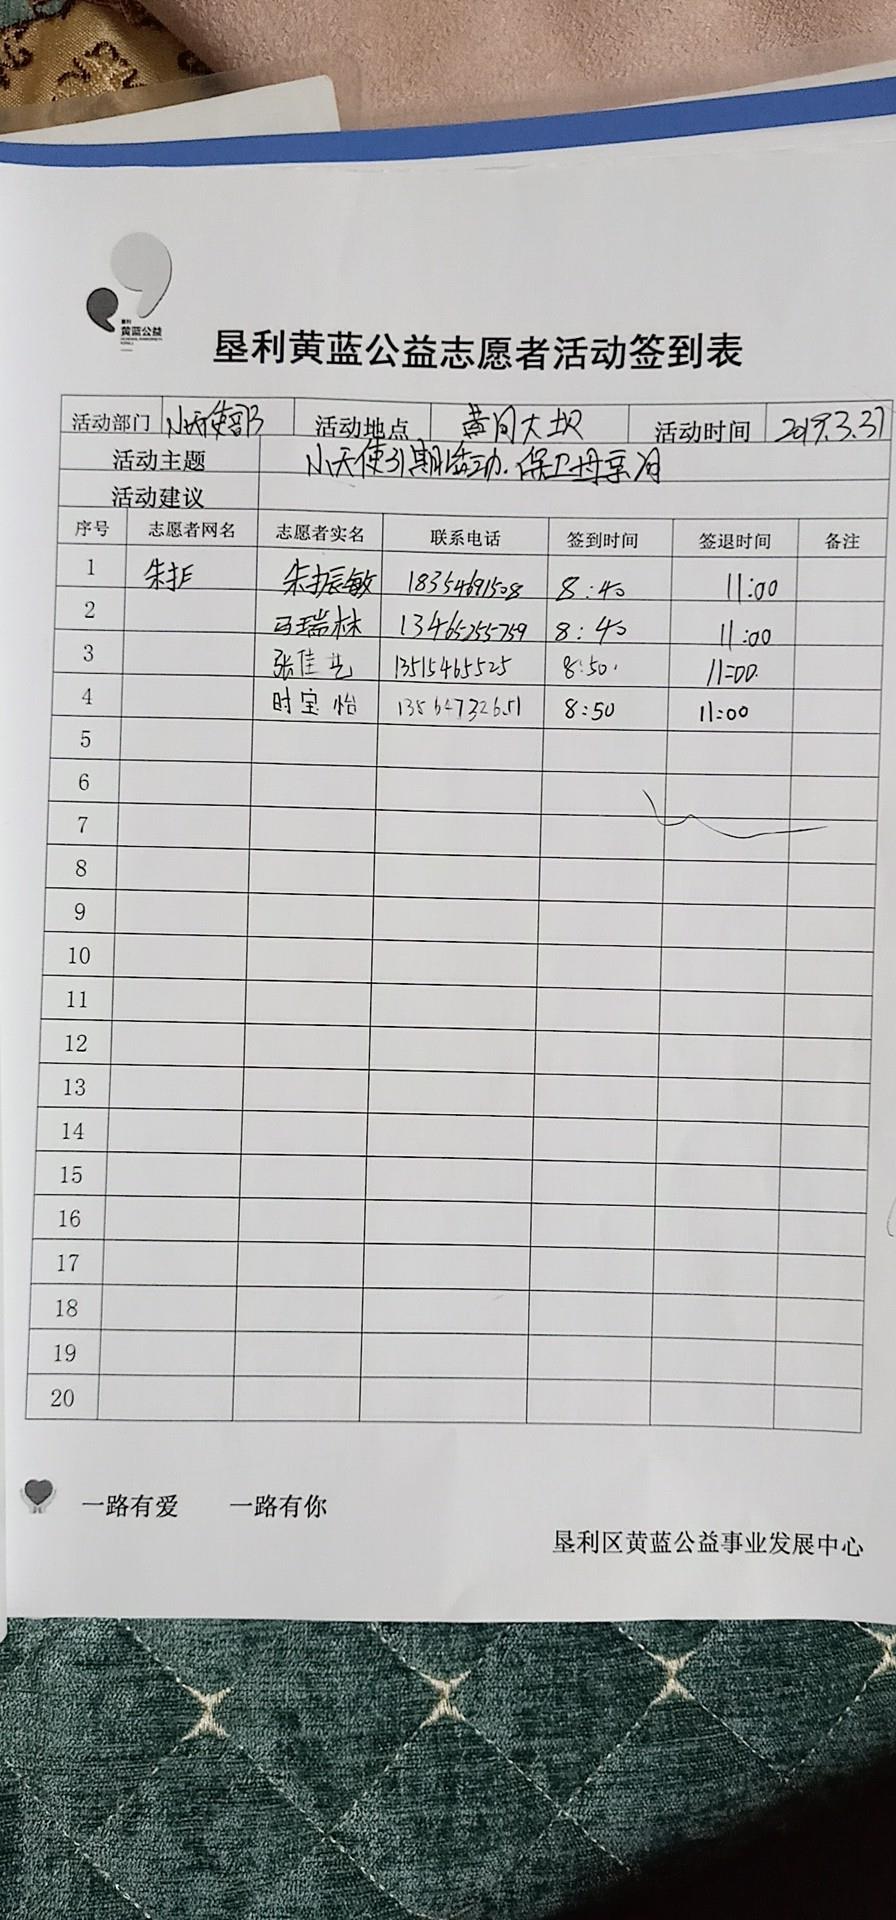 垦利
黄蓝公益
垦利黄蓝公益志愿者活动签到表
活动部门 小天使部 活动地点 黄河大坝 活动时间 2019.3.31
活动主题 小天使31期活动.保卫母亲河
活动建议
序号 志愿者网名 志愿者实名 联系电话 签到时间 签退时间 备注
1 朱振敏 18354691508 8:40 11:00
2 马瑞林 13465255759 8:40 11:00
3 张佳艺 13515465525 8:50 11:00
4 时宝怡 13564732651 8:50 11:00
5
6
7
8
9
10
11
12
13
14
15
16
17
18
19
20
一路有爱 一路有你
垦利区黄蓝公益事业发展中心